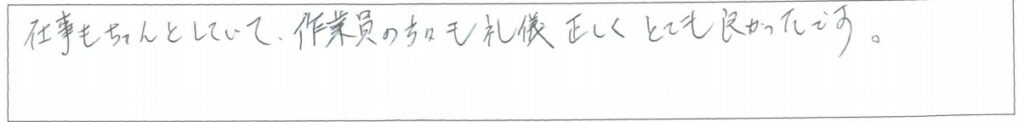 仕事もちゃんとしていて、作業員の方々も礼儀正しくとても良かったです。